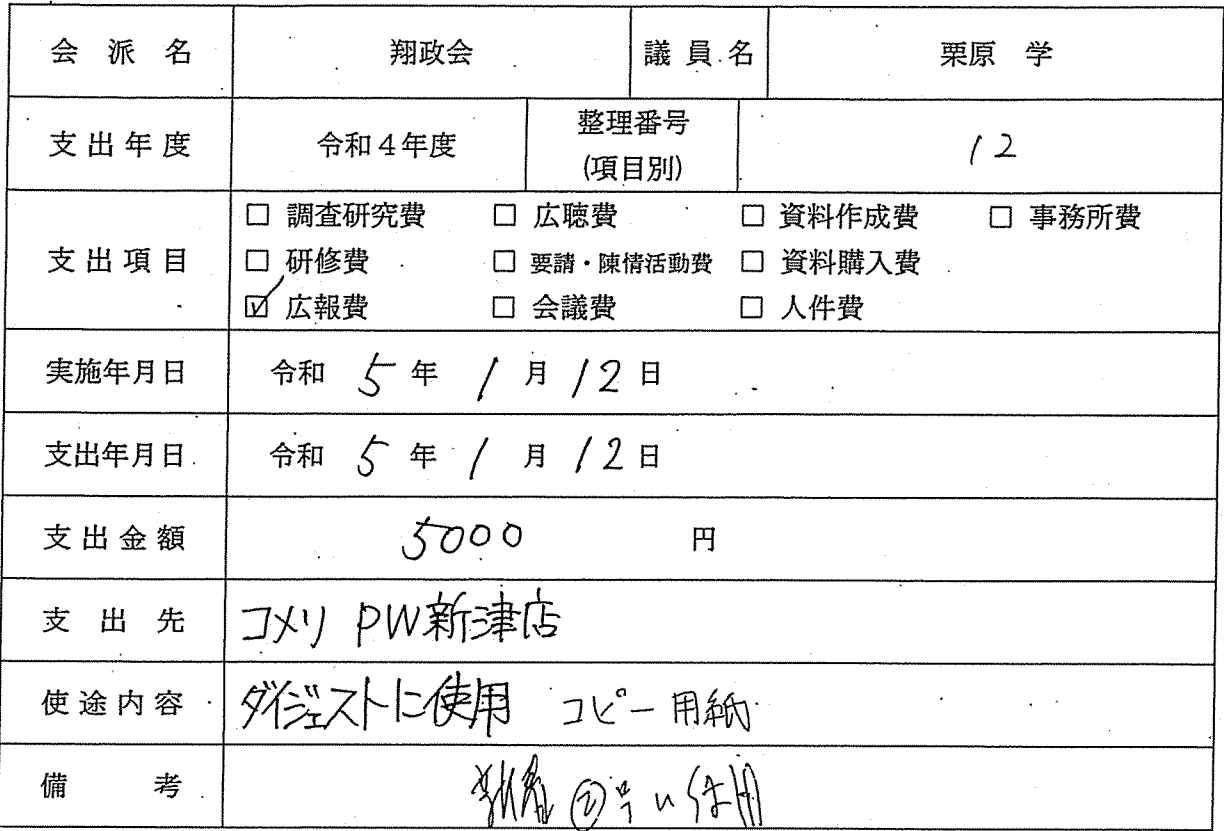 会派名 翔政会 議員名 栗原 学
支出年度 令和4年度 整理番号 (項目別) 12
支出項目
□ 調査研究費 □ 広聴費 □ 資料作成費 □ 事務所費
□ 研修費 □ 要請・陳情活動費 □ 資料購入費
☑ 広報費 □ 会議費 □ 人件費
実施年月日 令和 5 年 1 月 12 日
支出年月日 令和 5 年 1 月 12 日
支出金額 5000 円
支出先 コメリ PW新津店
使途内容 ダイジェストに使用 コピー用紙
備考